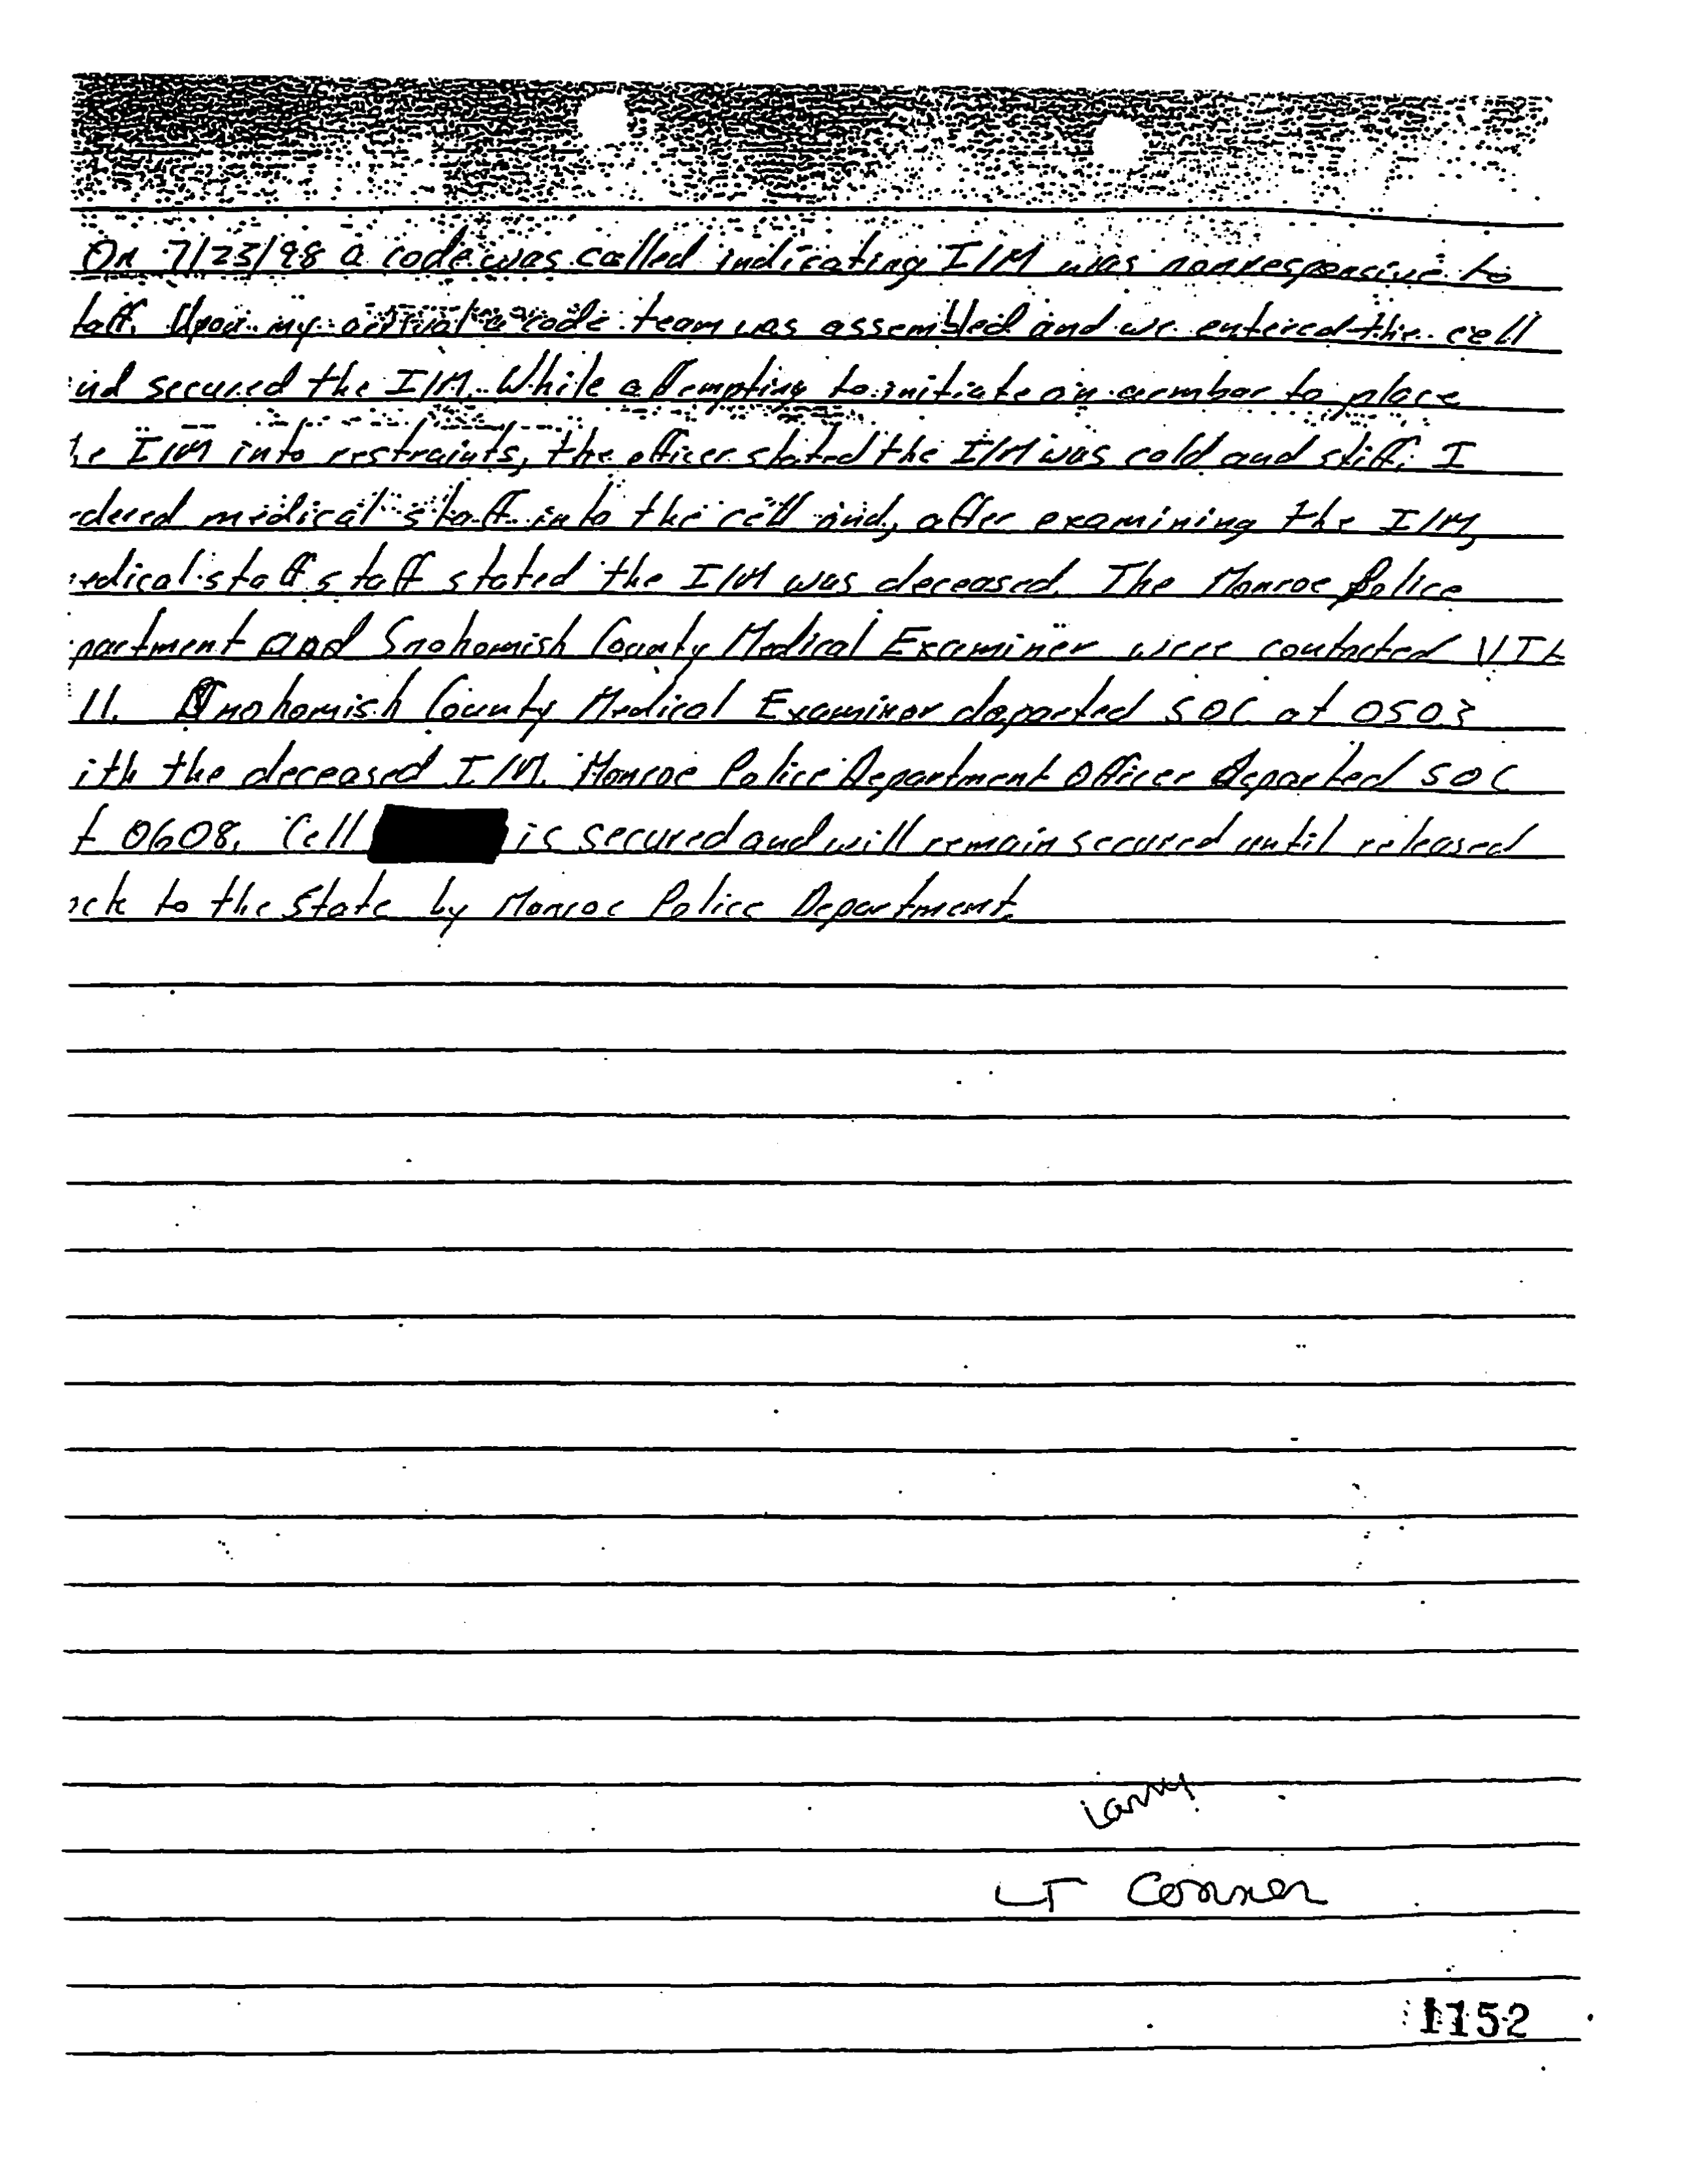 On 7/23/98 a code was called indicating I/M was nonresponsive to
taff. Upon my arrival a code team was assembled and we entered the cell
nd secured the I/M. While attempting to initiate an armbar to place
he I/M into restraints, the officer stated the I/M was cold and stiff. I
rdered medical staff into the cell and, after examining the I/M,
edical staff staff stated the I/M was deceased. The Monroe Police
partment and Snohomish County Medical Examiner were contacted VIA
11. Snohomish County Medical Examiner departed SOC at 0503
ith the deceased I/M. Monroe Police Department Officer departed SOC
t 0608. Cell is secured and will remain secured until released
ack to the State by Monroe Police Department.
Larry
LT Conner
1152